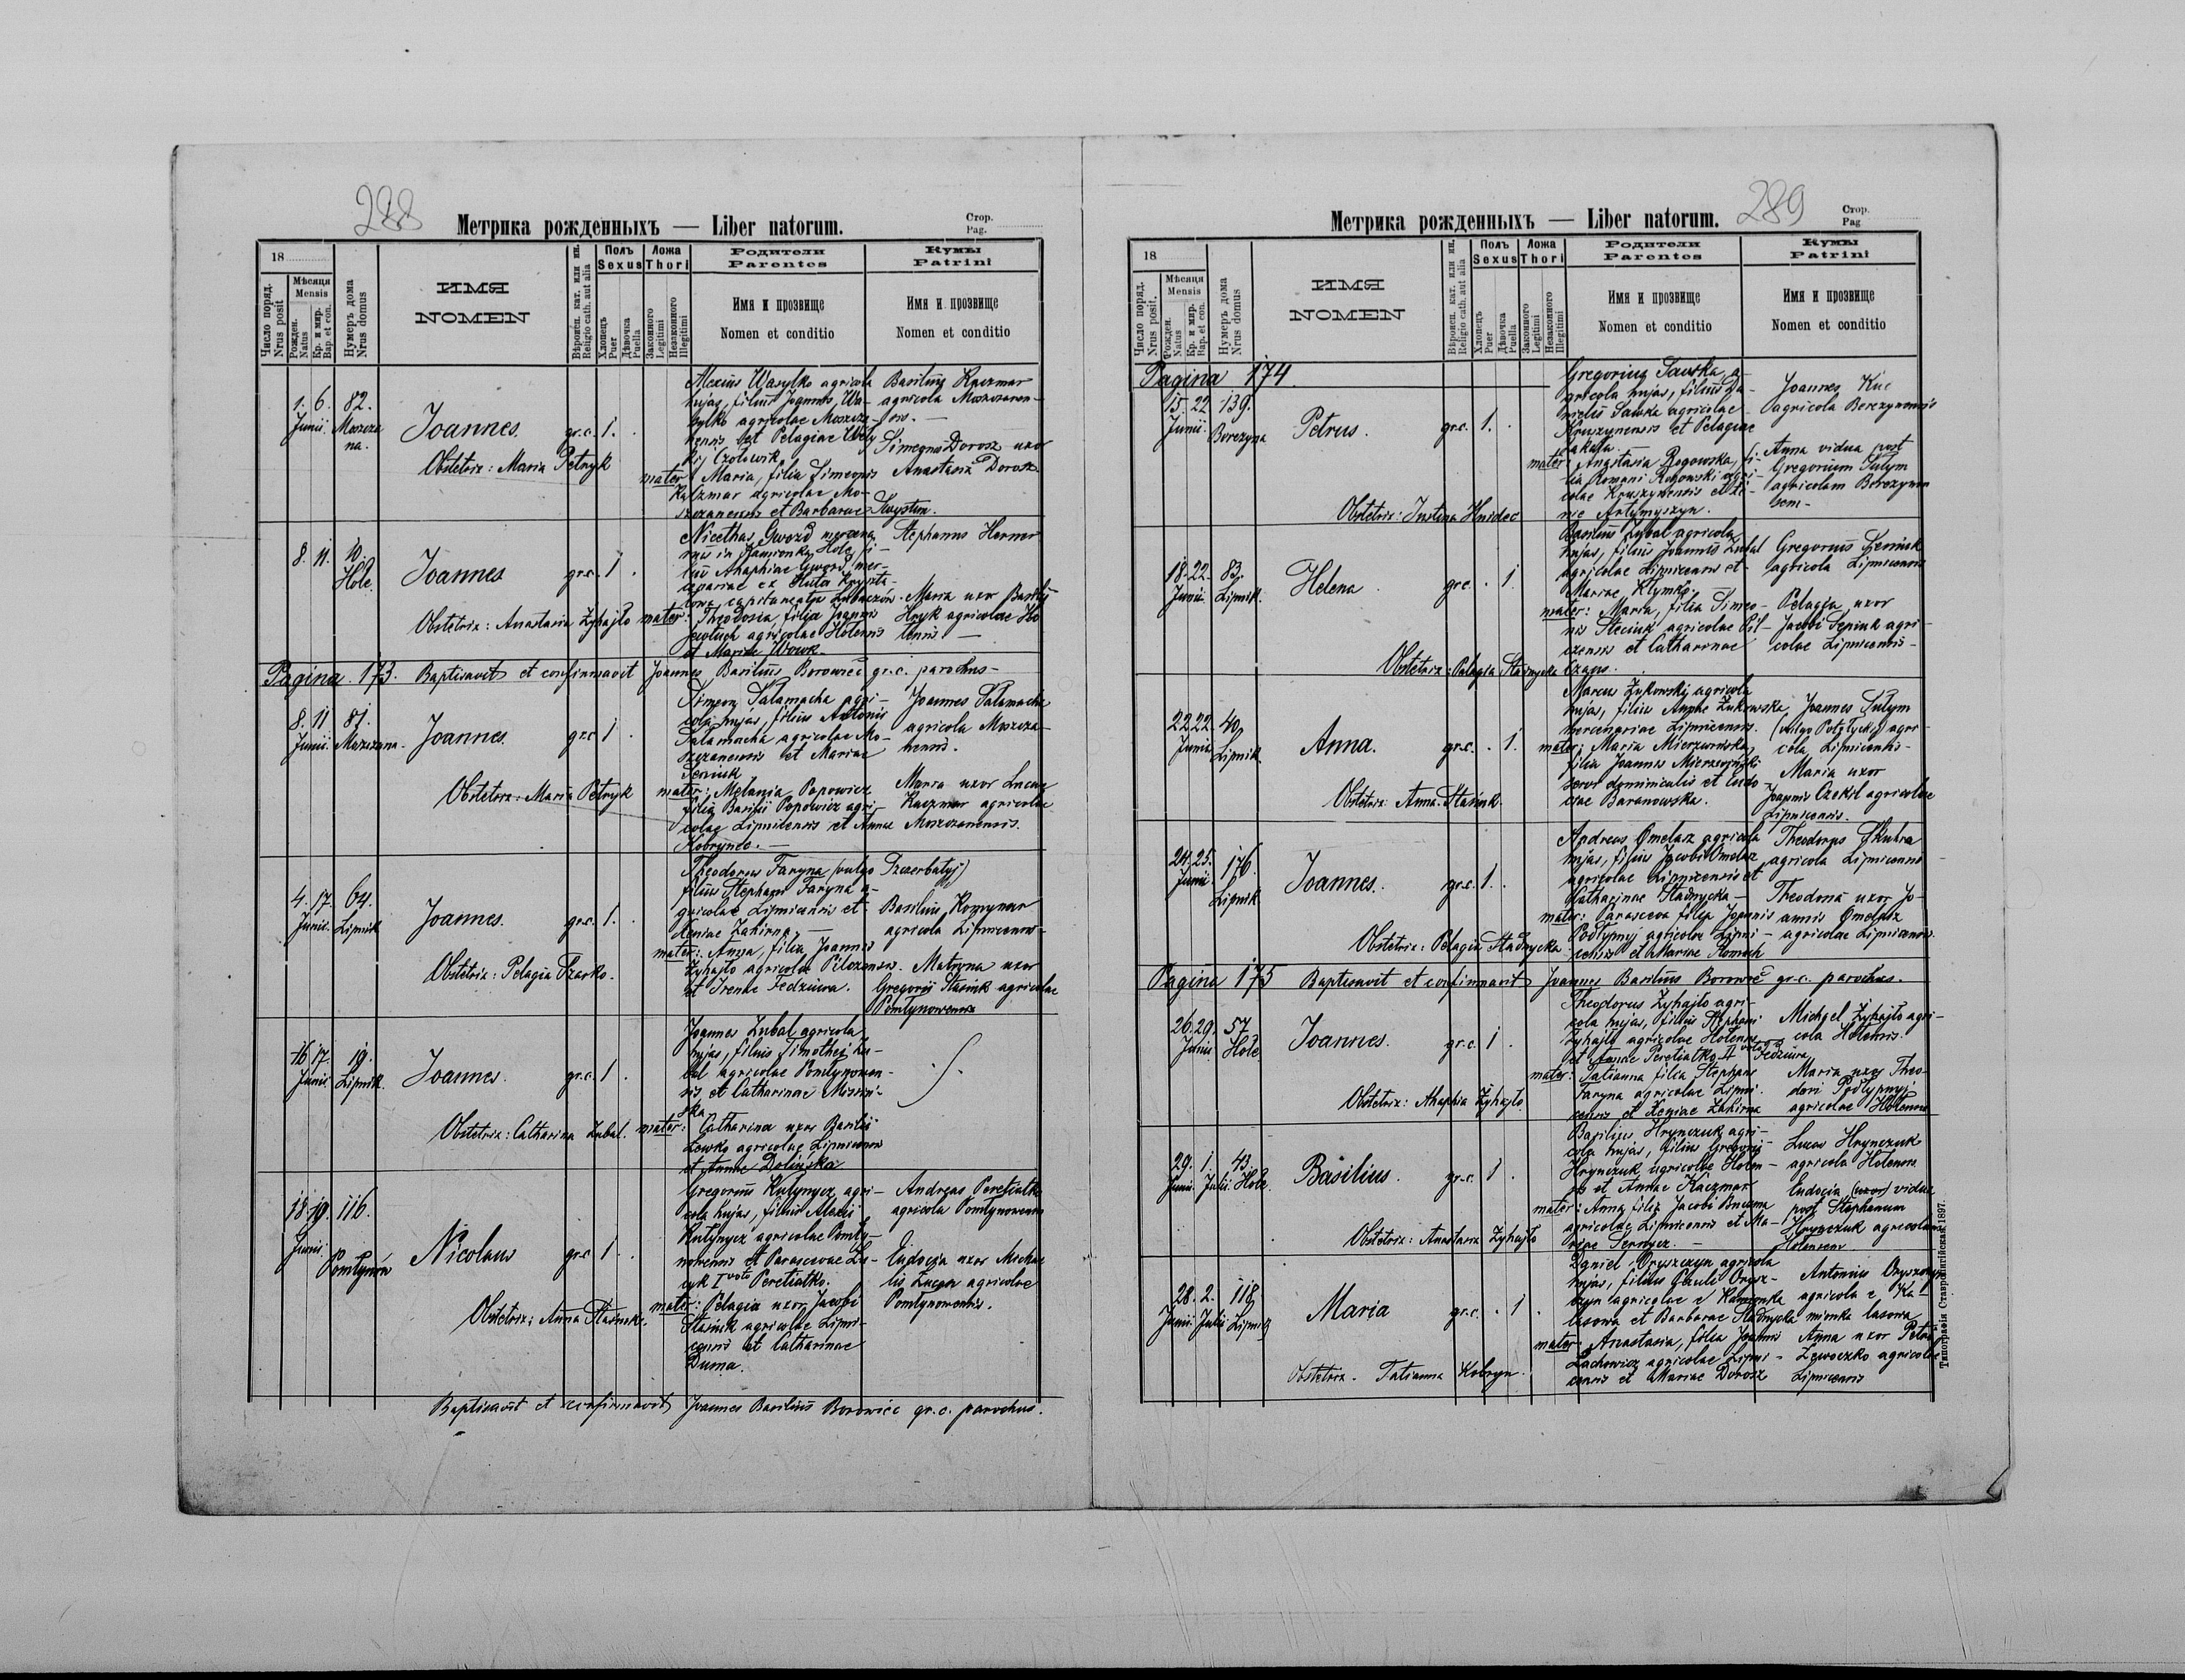 288
Метрика рожденныхъ — Liber natorum.
Стор.
Pag.
18
Число поряд.
Nrus posit
Мѣсяця
Mensis
Рожден.
Natus
Кр. и мир.
Bap. et con.
Нумеръ дома
Nrus domus
ИМЯ
NOMEN
Вѣроисп. кат. или ин.
Religio cath. aut alia
Полъ
Sexus
Хлопецъ
Puer
Дѣвочка
Puella
Ложа
Thori
Законного
Legitimi
Незаконного
Illegitimi
Родители
Parentes
Имя и прозвище
Nomen et conditio
Кумы
Patrini
Имя и прозвище
Nomen et conditio
1. 6. 82.
Junii Moszcza
na.
Joannes. gr.c. 1.
Obstetrix: Maria Petryk
Alexius Wasylko agricola
hujas, filius Joannis Wa-
sylko agricolae Moszcza-
nensis et Pelagiae Wely
kij Czolowik
mater Maria, filia Simeonis
Kaczmar agricolae Mo-
szczanensis et Barbarae Swystun.
Basilius Kaczmar
agricola Moszczanen-
sis. —
Simeonis Dorosz uxor
Anastasia Dorosz
8. 11. 10.
Hole.
Joannes gr.c. 1.
Obstetrix: Anastasia Zyhajlo
Nicethas Gwozd mercena
rius in Kamionka Hole, fi-
lius Ahaphiae Gwozd mer-
cenariae ex Huta Kryszta-
lowa, capitaneatu Lubaczów.
mater: Theodosia, filia Joannis
agricolae Holensis
et Mariae Wowk
Stephanus Harner
Maria uxor Basilij
Hryk agricolae Ho
lensis —
Pagina 173. Baptisavit et confirmavit Joannes Basilius Borowiec gr.c. parochus —
8. 11 81.
Junii. Moszczana.
Joannes. gr.c. 1.
Obstetrix: Maria Petryk
Simeon Salamacha agri-
cola hujas, filius Antonii
Salamacha agricolae Mo-
szczanensis et Mariae
Seniuk
mater: Melania Popowicz
filia Basilii Popowicz agri-
colae Lipnicensis et Annae
Kobryniec. —
Joannes Salamacha
agricola Moszcza-
nensis.
Maria uxor Lucae
Kaczmar agricolae
Moszczanensis.
4. 17. 64.
Junii. Lipnik
Joannes. gr.c. 1.
Obstetrix: Pelagia Szarko.
Theodorus Faryna (vulgo Szczerbatyj)
filius Stephani Faryna a-
gricolae Lipnicensis et
Xeniae Zahirna —
mater: Anna, filia Joannis
Zyhajlo agricolae Pilczensis.
et Irenae Fedziura.
Basilius Komynar
agricola Lipnicensis-
Matrona uxor
Gregorii Stasiuk agricolae
Pomlynowensis
16. 17. 19.
Junii Lipnik.
Joannes. gr.c. 1.
Obstetrix: Catharina Zubal.
Joannes Zubal agricola
hujas, filius Timothei Zu-
bal agricolae Pomlynowen-
sis et Catharinae Misiu-
ska
mater: Catharina uxor Basilii
Lewko agricolae Lipnicensis
et Annae Dolińska
18. 19. 116.
Junii. Pomlynów
Nicolaus gr.c. 1.
Obstetrix: Anna Stasiuk.
Gregorius Kulynycz agri-
cola hujas, filius Alexii
Kulynycz agricolae Pomly-
nowensis et Parascevae Lu-
cyk I voto Peretiatko.
mater: Pelagia uxor Jacobi
Stasiuk agricolae Lipni-
censis et Catharinae
Duma.
Andreas Peretiatko
agricola Pomlynowensis
Eudocia uxor Micha
lis agricolae
Pomlynowensis.
Baptisavit et confirmavit Joannes Basilius Borowiec gr.c. parochus.
289
Метрика рожденныхъ — Liber natorum.
Стор.
Pag
18
Число поряд.
Nrus posit.
Мѣсяця
Mensis
Рожден.
Natus
Кр. и мир.
Bap. et con.
Нумеръ дома
Nrus domus
ИМЯ
NOMEN
Вѣроисп. кат. или ин.
Religio cath. aut alia
Полъ
Sexus
Хлопецъ
Puer
Дѣвочка
Puella
Ложа
Thori
Законного
Legitimi
Незаконного
Illegitimi
Родители
Parentes
Имя и прозвище
Nomen et conditio
Кумы
Patrini
Имя и прозвище
Nomen et conditio
Pagina 174
15. 22 139.
Junii. Berezyna
Petrus. gr.c. 1.
Obstetrix: Justina Hnidec
Gregorius Sawka, a-
gricola hujas, filius Da-
nielis Sawka agricolae
Kruszynensis et Pelagiae
mater: Anastasia Rogowska, fi-
lia Romani Rogowski agri-
colae Kruszynensis et Xe-
niae Artymyszyn.
Joannes Kuc
agricola Berezynensis
Anna vidua post
Gregorium Sulym
agricolam Berezynen
sem -
18. 22. 83.
Junii. Lipnik.
Helena gr.c. 1
Obstetrix: Pelagia Stadnycka
Basilius Zubal agricola
hujas, filius Joannis Zubal
agricolae Lipnicensis et
Mariae Klymko,
mater: Maria, filia Simeo-
nis Steciuk agricolae Pil-
czensis et Catharinae
Czapo.
Gregorius Seniuk
agricola Lipnicensis
Pelagia uxor
Jacobi Seniuk agri-
colae Lipnicensis-
22. 22. 40.
Junii. Lipnik.
Anna. gr.c. 1.
Obstetrix: Anna Stasiuk.
Marcus Zukowskij agricola
hujas, filius Annae Zukowska
mercenariae Lipnicensis.
mater: Maria Mierzwińska
filia Joannis Mierzwiński
servi dominicalis et Eudo-
ciae Baranowska.
Joannes Sulym
agri-
cola Lipnicensis-
Maria uxor
Joannis Czekil agricolae
Lipnicensis.
24. 25. 176.
Junii Lipnik
Joannes. gr.c. 1.
Obstetrix: Pelagia Stadnycka
Andreas Omelaz agricola
hujas, filius Jacobi Omelaz
agricolae Lipnicensis et
Catharinae Stadnycka —
mater: Parasceva filia Joannis
Podlypnyj agricolae Lipni-
censis et Mariae Homech
Theodorus Skutra
agricola Lipnicensis
Theodora uxor Jo-
annis Omelaz
agricolae Lipnicensis.
Pagina 175 Baptisavit et confirmavit Joannes Basilius Borowiec gr.c. parochus.
26. 29. 57
Junii. Hole
Joannes. gr.c. 1.
Obstetrix: Ahaphia Zyhajlo.
Theodorus Zyhajlo agri-
cola hujas, filius Stephani
Zyhajlo agricolae Holensis
et Annae Peretiatko voto Fedziura
mater: Tatianna filia Stephani
Faryna agricolae Lipni-
censis et Xeniae Zahirna
Michael Zyhajlo agri-
cola Holensis.
Maria uxor Theo-
dori Podlypnyj
agricolae Holensis
29. 1. 43.
Junii. Julii. Hole.
Basilius. gr.c. 1.
Obstetrix: Anastasia Zyhajlo
Basilius Hrynczuk agri-
cola hujas, filius Gregorii
Hrynczuk agricolae Holen-
sis et Annae Kaczmar
mater: Anna filia Jacobi
agricolae Lipnicensis et Ma-
riae Serwycz. —
Lucas Hrynczuk
agricola Holensis
Eudocia (uxor) vidua
post Stephanum
Hrynczuk agricolam
Holensem
28. 2. 118.
Junii Julii Lipnik
Maria gr.c. 1.
Obstetrix - Tatianna Kobryn.
Daniel Oryszczyn agricola
hujas, filius Pauli Orysz-
czyn agricolae e Kamionka
lasowa et Barbarae Stadnycka
mater - Anastasia, filia Joannis
Lachowicz agricolae Lipni-
censis et Mariae Dorosz
Antonius Oryszczyn
agricola e Ka-
mionka lasowa
Anna uxor Petri
Zewoczko agricolae
Lipnicensis
Типографія Ставропигійская 1897.